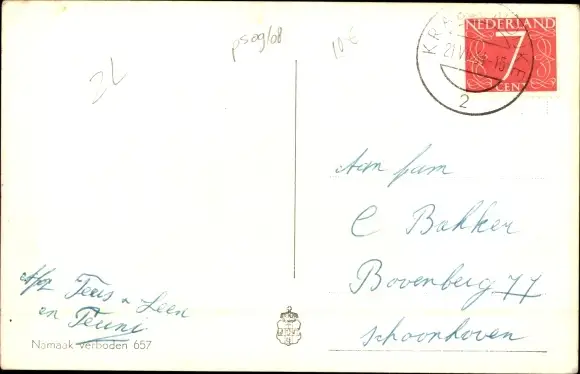 psog/08
10 €
2L
NEDERLAND
7
CENT
21 V
2
Aan fam
C Bakker
Bovenberg 77
Schoonhoven
Afz Teus n Leen
en Teuni
Namaak verboden 657